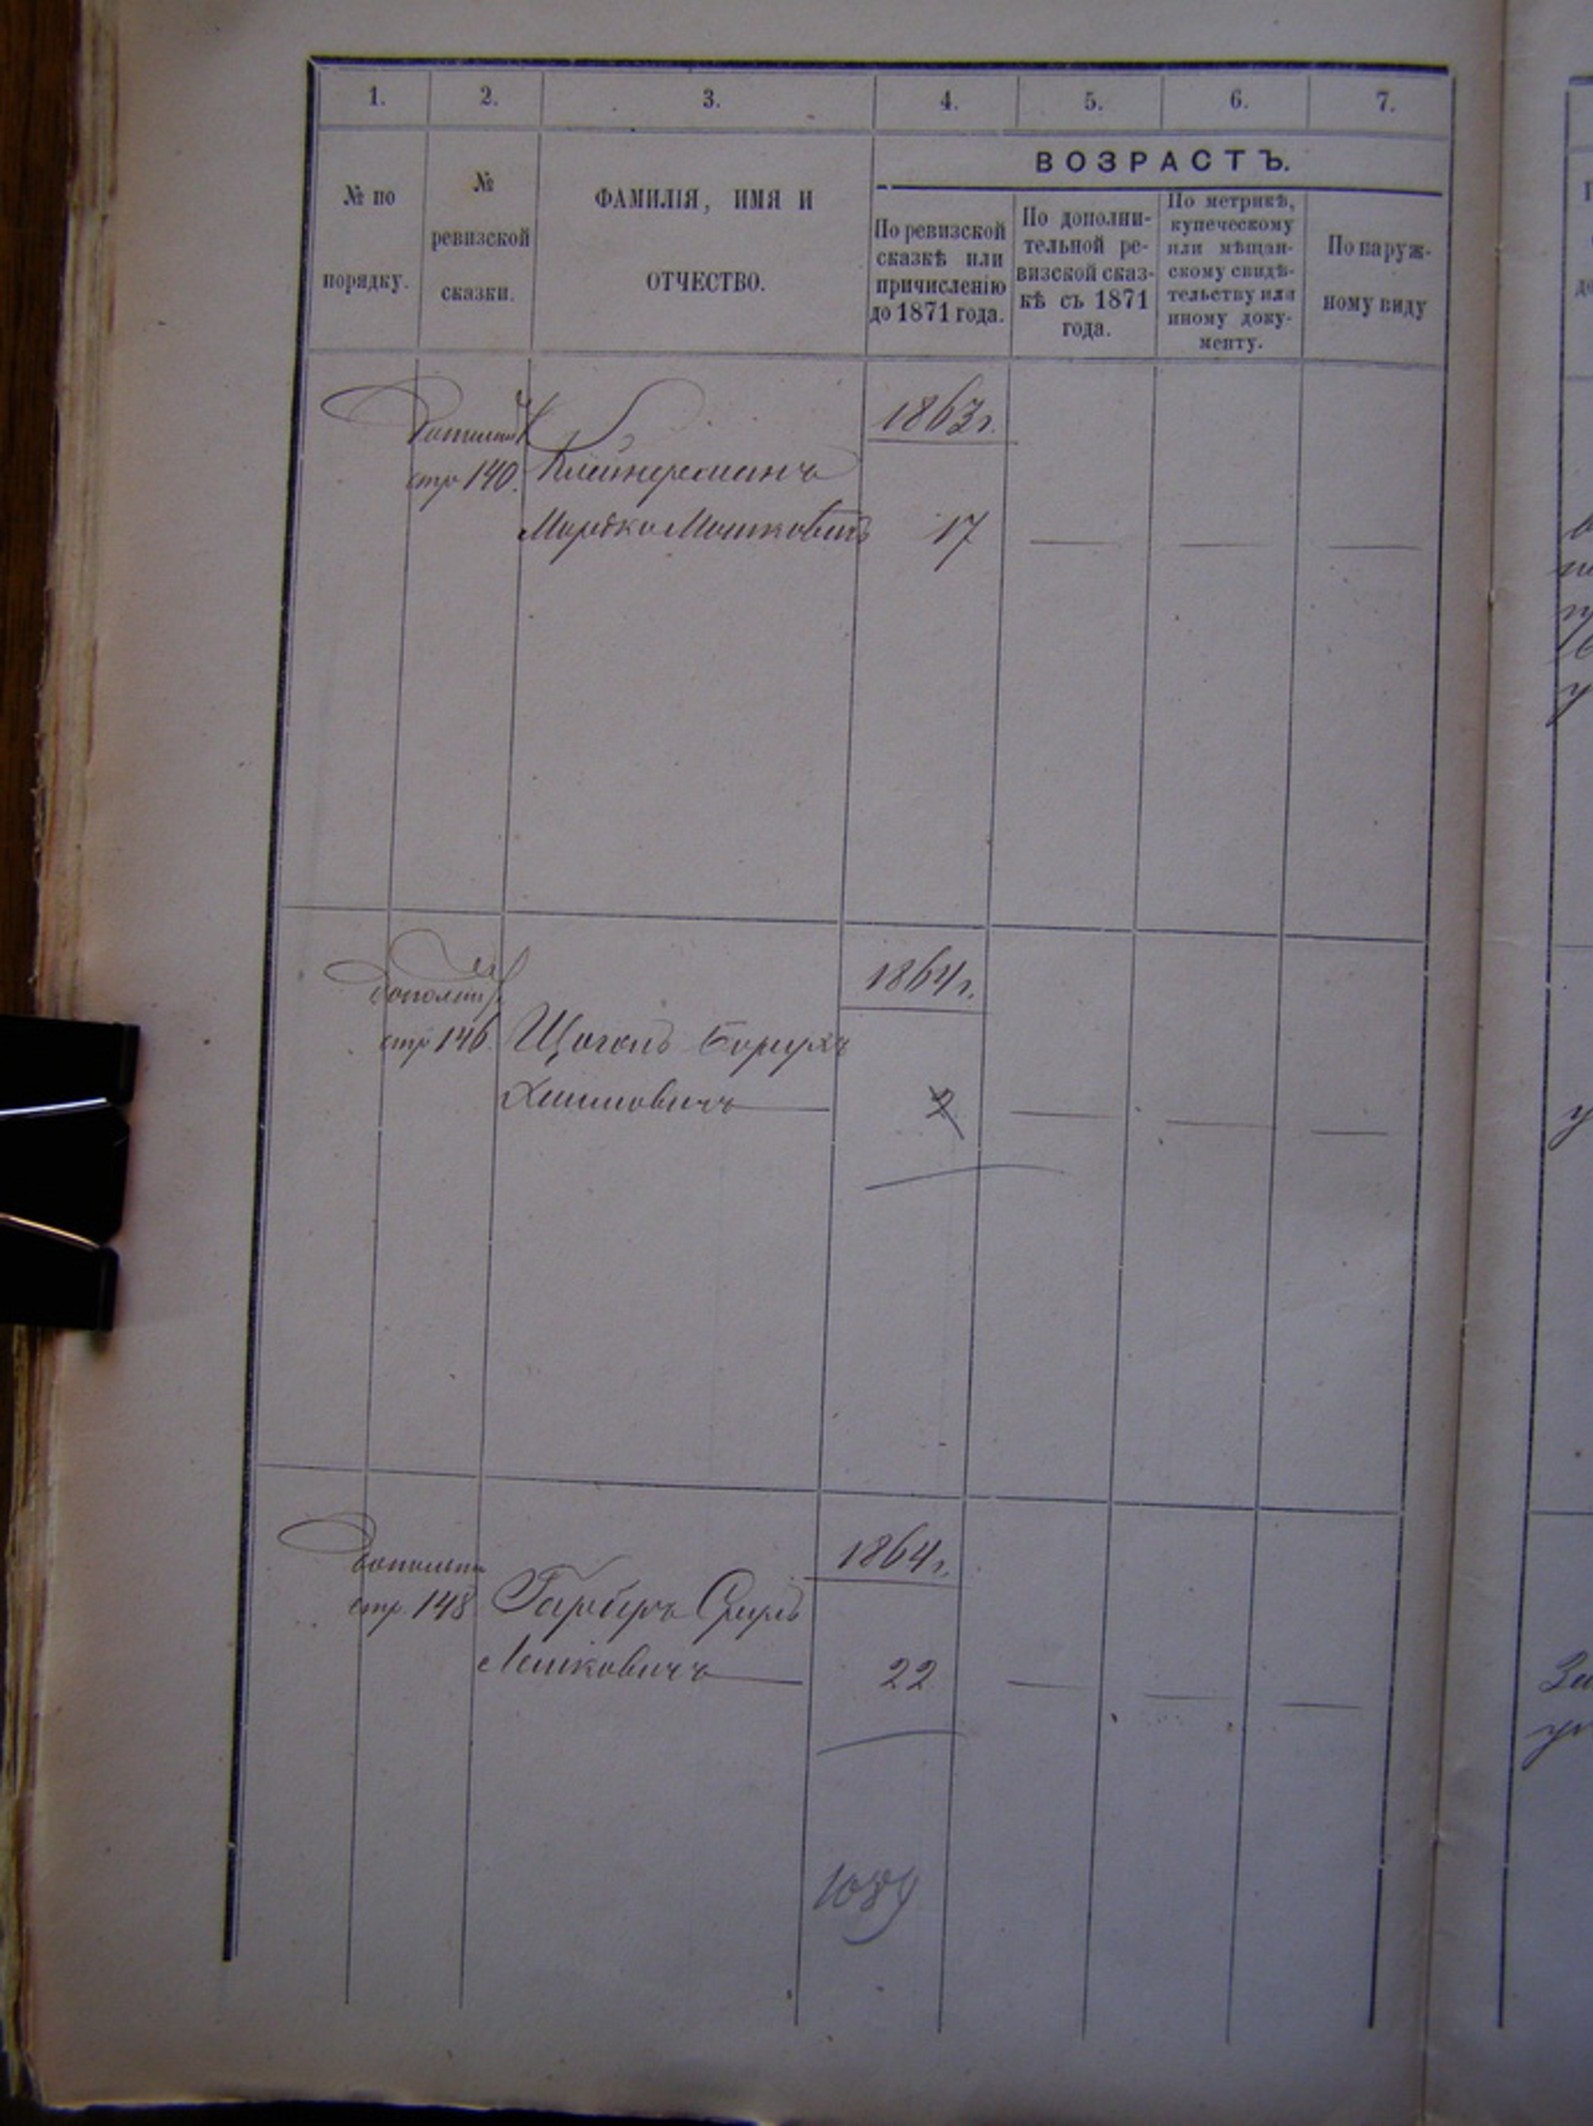 1. 2. 3. 4. 5. 6. 7.
№ по порядку.
№ ревизской сказки.
ФАМИЛІЯ, ИМЯ И
ОТЧЕСТВО.
ВОЗРАСТЪ.
По ревизской
сказкѣ или
причисленію
до 1871 года.
По дополни-
тельной ре-
визской сказ-
кѣ съ 1871
года.
По метрикѣ,
купеческому
или мѣщан-
скому свидѣ-
тельству или
иному доку-
менту.
По наруж-
ному виду
1863 г.
стр 140. Клейнерманъ
Мордко Мошковичъ 17
1864 г.
Дополн
стр 146. Щоголь Борухъ
Хаимовичъ
1864 г.
Дополн
стр. 148 Гарберъ Сруль
Лейковичъ 22
1089